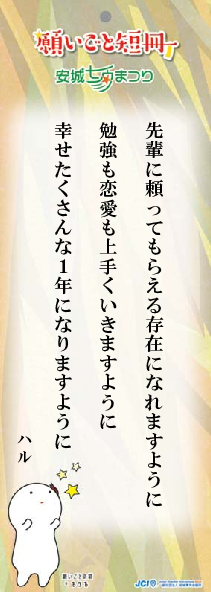 願いごと短冊
安城七夕まつり
先輩に頼ってもらえる存在になれますように
勉強も恋愛も上手くいきますように
幸せたくさんな1年になりますように
ハル
願いごと短冊
JCI